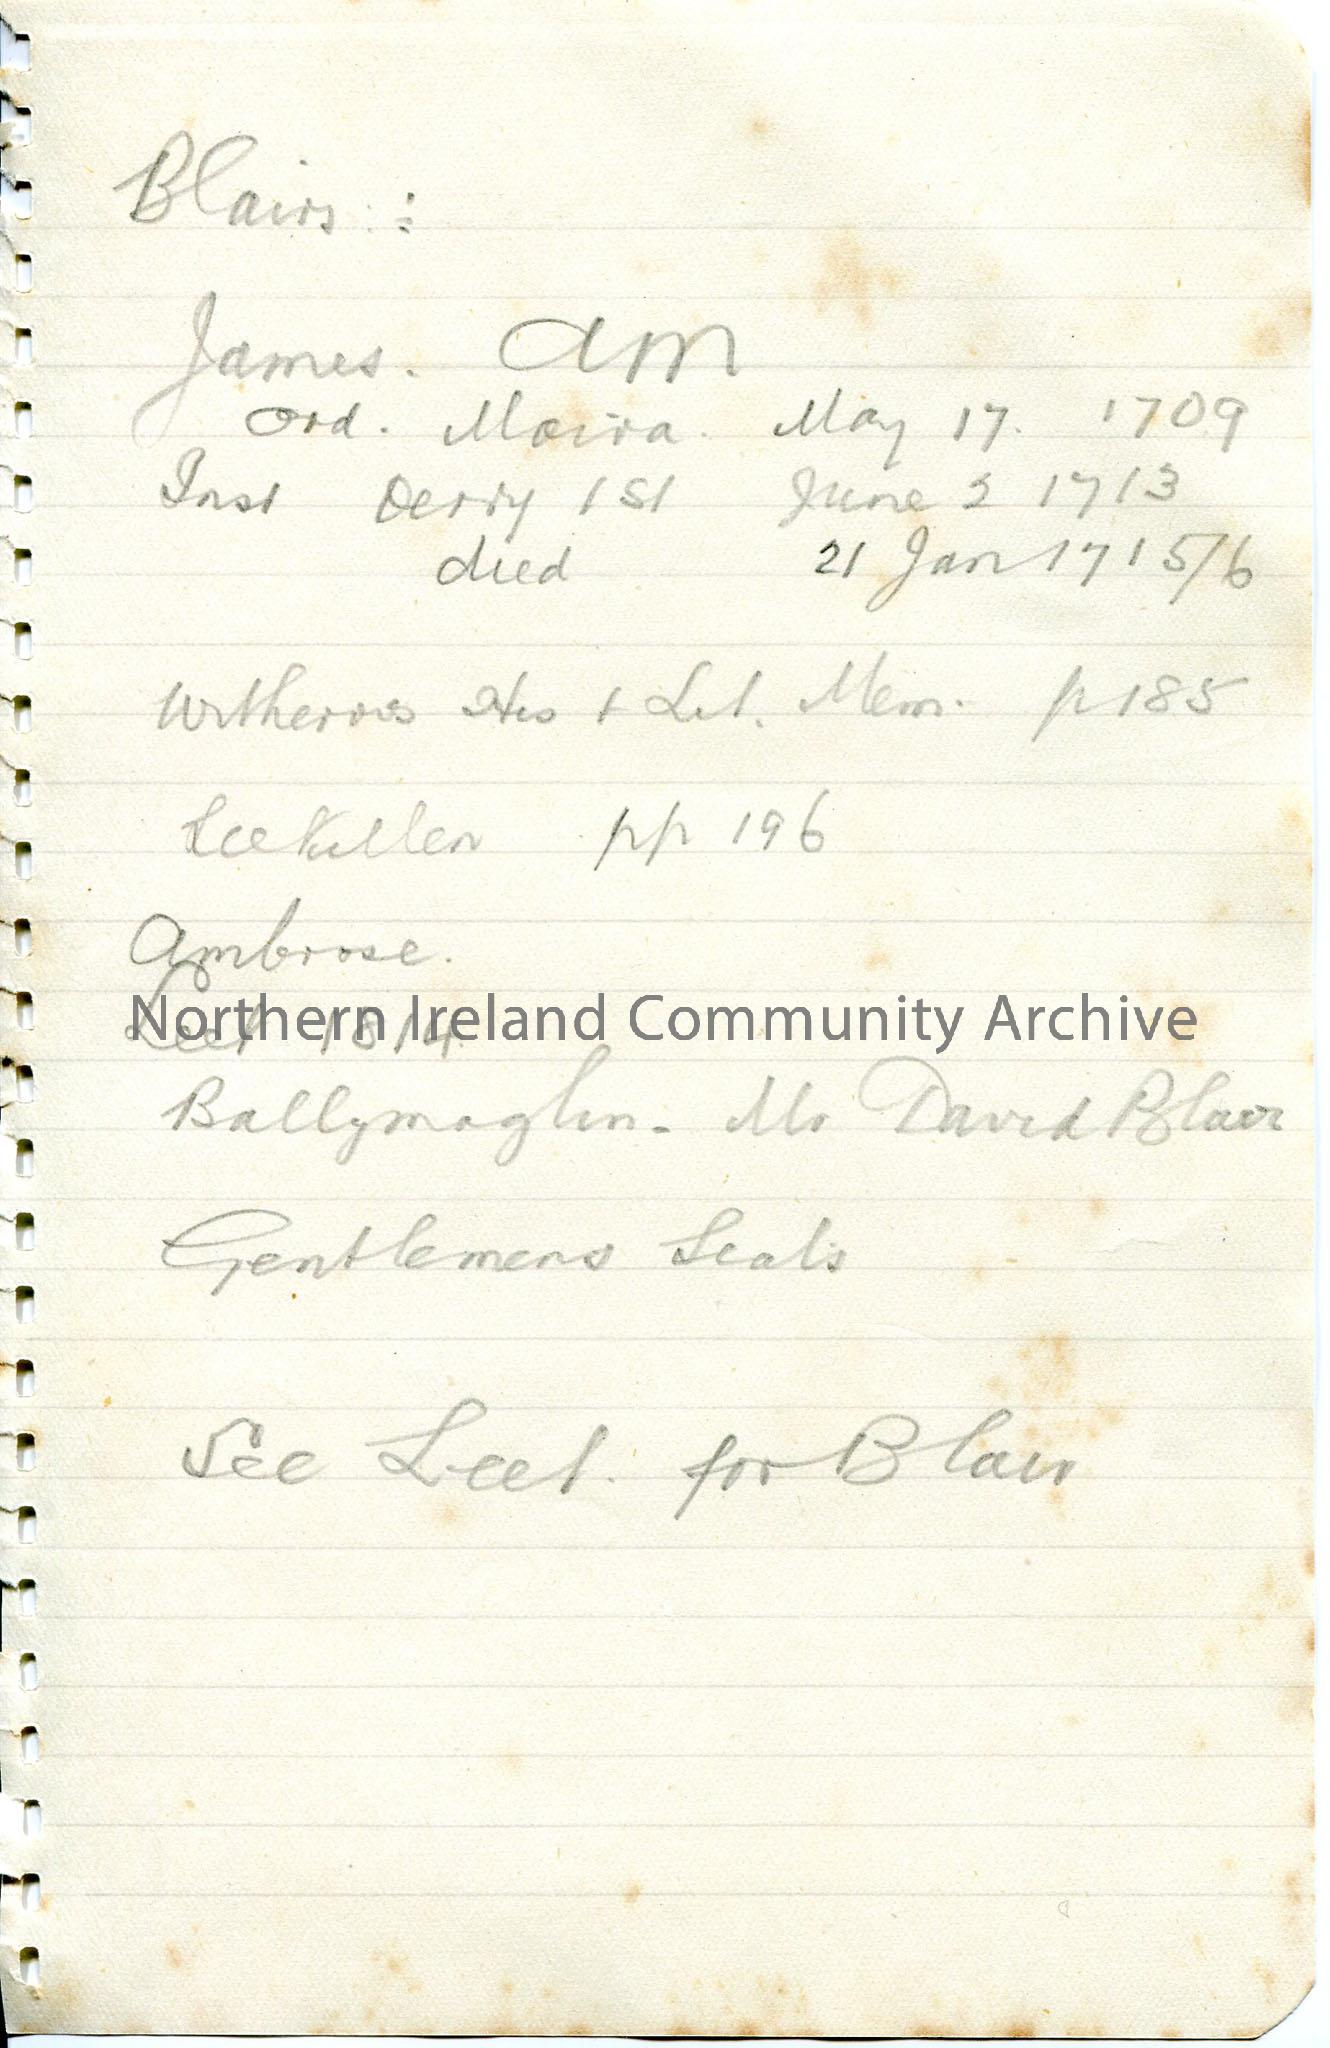 Blairs :
James. AM
Ord. Moira. May 17. 1709
Inst Derry 1st June 2 1713
died 21 Jan 1715/6
Witherows His + Lit. Mem. p 185
See Killen pp 196
Ambrose.
Leet 1814.
Northern Ireland Community Archive
Ballymaglin - Mr David Blair
Gentlemens Seats
See Leet. for Blair